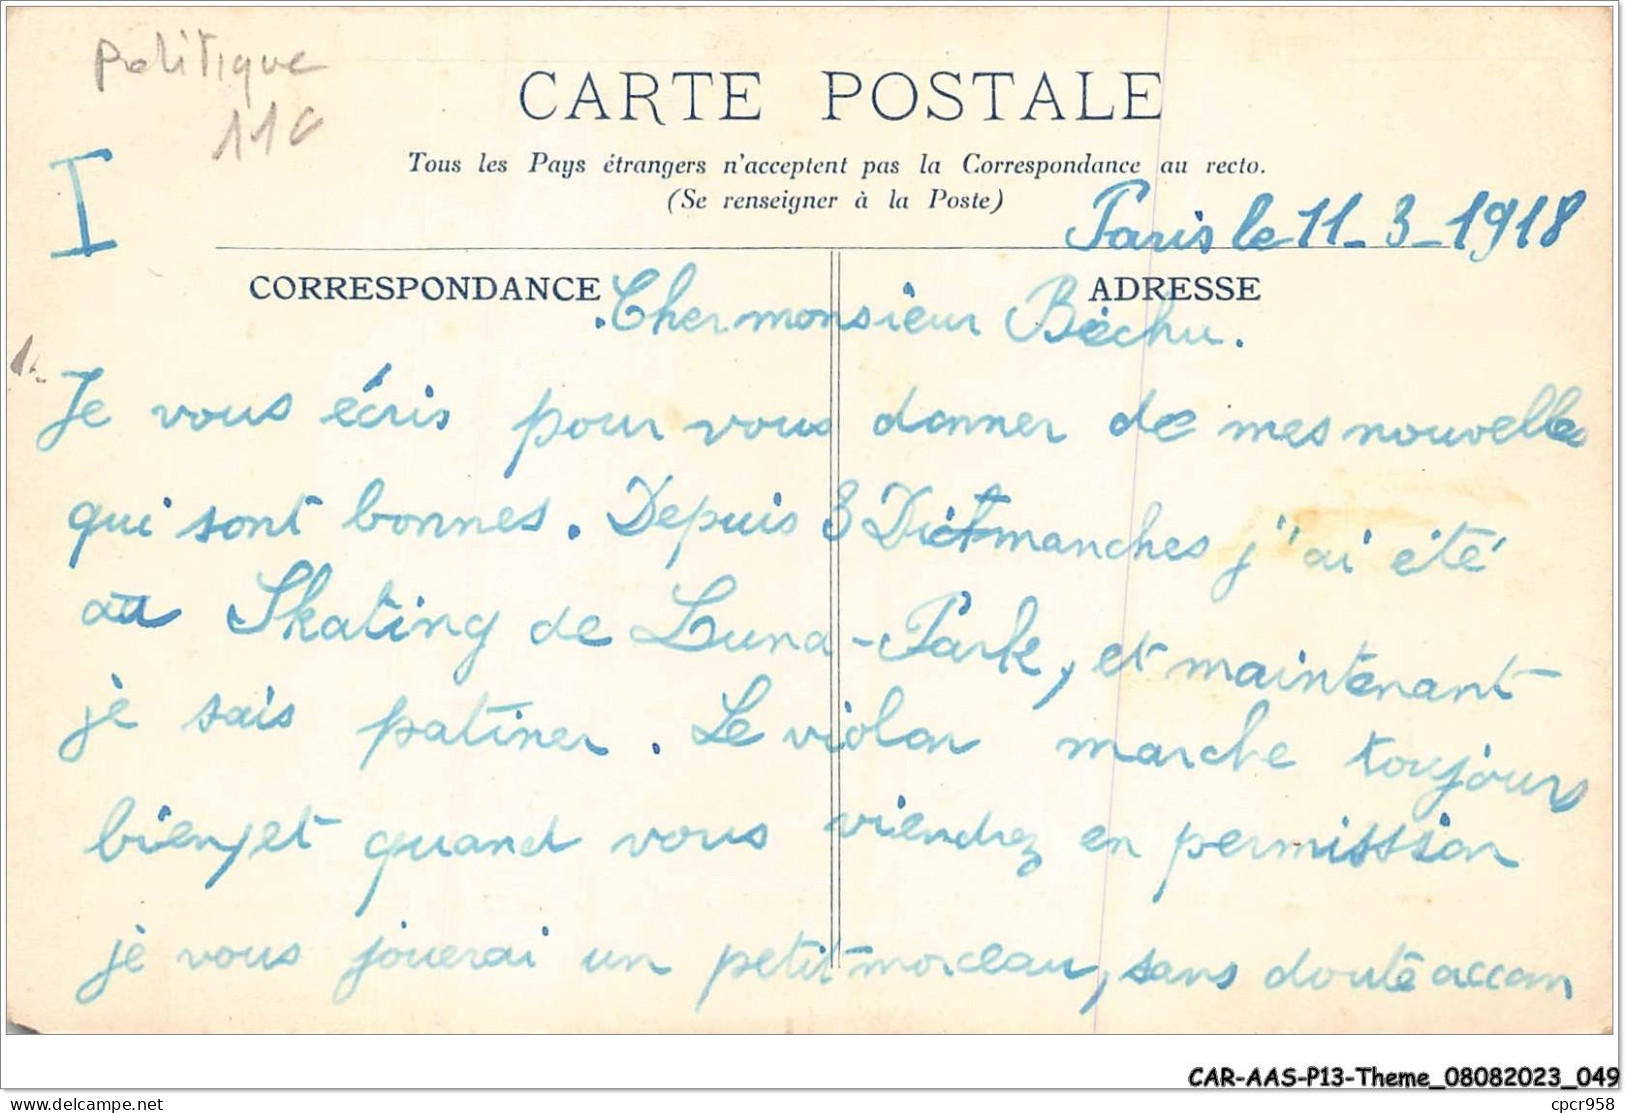 politique
110
I
CARTE POSTALE
Tous les Pays étrangers n'acceptent pas la Correspondance au recto.
(Se renseigner à la Poste)
Paris le 11-3-1918
CORRESPONDANCE
ADRESSE
Cher monsieur Béchu.
Je vous écris pour vous donner de mes nouvelles
qui sont bonnes. Depuis 3 Dimanches j'ai été
au Skating de Luna-Park, et maintenant
je sais patiner. Le violon marche toujours
bien, et quand vous viendrez en permission
je vous jouerai un petit morceau, sans doute accom
CAR-AAS-P13-Theme_08082023_049
cpcr958